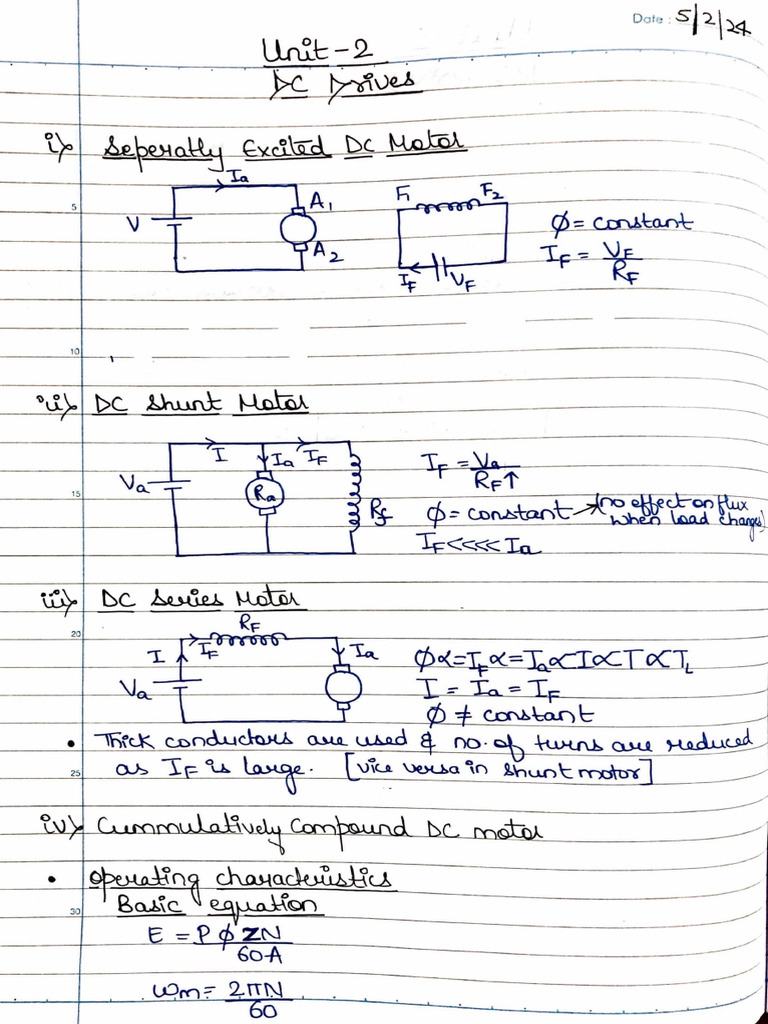 Date : 5/2/24
Unit-2
DC Drives
i) Seperatly Excited DC Motor
Ia
V
A1
A2
F1 F2
IF VF
ϕ = constant
IF = VF/RF
5
10
ii) DC Shunt Motor
I Ia IF
Va
Ra
Rf
IF = Va/RF↑
ϕ = constant → (no effect on flux
when load changes)
IF <<<< Ia
15
iii) DC Series Motor
20
RF
I IF Ia
Va
ϕ∝=IF∝=Ia∝I∝T∝TL
I = Ia = IF
ϕ ≠ constant
• Thick conductors are used & no. of turns are reduced
as IF is large. [vice versa in shunt motor]
25
iv) Cummulatively Compound DC motor
• operating characteristics
Basic equation
30
E = PϕZN/60A
ωm = 2πN/60